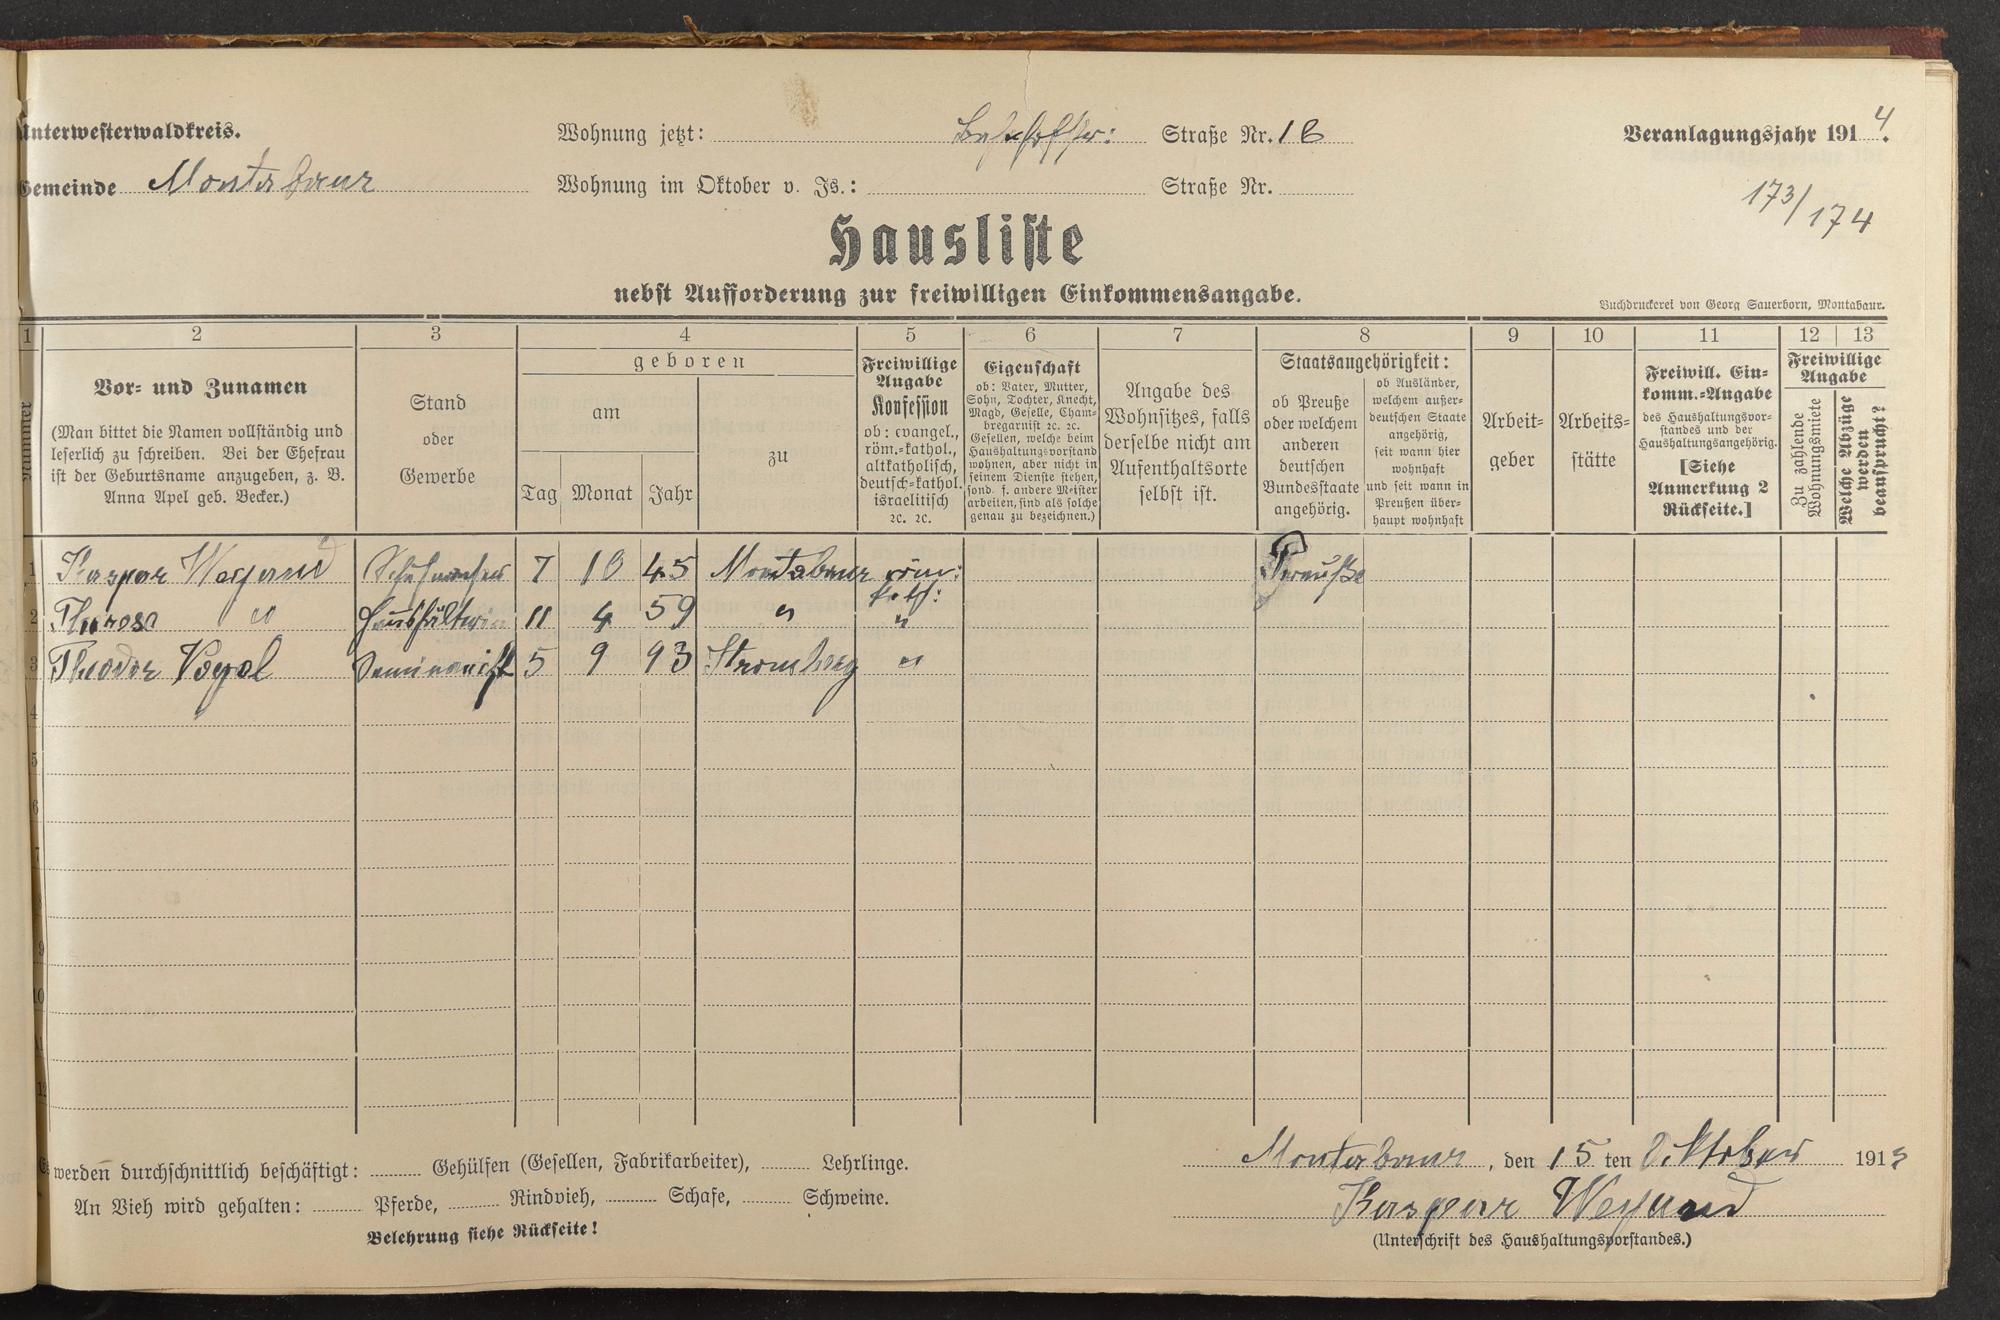 Unterwesterwaldkreis.
Wohnung jetzt: Bahnhofstr: Straße Nr. 16
Veranlagungsjahr 1914.
Gemeinde Montabaur
Wohnung im Oktober v. Js.: Straße Nr.
173/174
Hausliste
nebst Aufforderung zur freiwilligen Einkommensangabe.
Buchdruckerei von Georg Sauerborn, Montabaur.
1 2 3 4 5 6 7 8 9 10 11 12 13
Nummer
Vor- und Zunamen
(Man bittet die Namen vollständig und
leserlich zu schreiben. Bei der Ehefrau
ist der Geburtsname anzugeben, z. B.
Anna Apel geb. Becker.)
Stand
oder
Gewerbe
geboren
am
Tag Monat Jahr
zu
Freiwillige
Angabe
Konfession
ob: evangel.,
röm.-kathol.,
altkatholisch,
deutsch-kathol.
israelitisch
2c. 2c.
Eigenschaft
ob: Vater, Mutter,
Sohn, Tochter, Knecht,
Magd, Geselle, Cham-
bregarnist 2c. 2c.
Gesellen, welche beim
Haushaltungsvorstand
wohnen, aber nicht in
seinem Dienste stehen,
sond. f. andere Meister
arbeiten, sind als solche
genau zu bezeichnen.)
Angabe des
Wohnsitzes, falls
derselbe nicht am
Aufenthaltsorte
selbst ist.
Staatsangehörigkeit:
ob Preuße
oder welchem
anderen
deutschen
Bundesstaate
angehörig.
ob Ausländer,
welchem außer-
deutschen Staate
angehörig,
seit wann hier
wohnhaft
und seit wann in
Preußen über-
haupt wohnhaft
Arbeit-
geber
Arbeits-
stätte
Freiwill. Ein-
komm.-Angabe
des Haushaltungsvor-
standes und der
Haushaltungsangehörig.
[Siehe
Anmerkung 2
Rückseite.]
Freiwillige
Angabe
Zu zahlende
Wohnungsmiete
Welche Abzüge
werden
beansprucht?
1 Kaspar Weyand Schuhmacher 7 10 45 Montabaur röm: kath: Preuße
2 Theresa " Haushälterin 11 4 59 " "
3 Theodor Vogel Seminarist 5 9 93 Stromberg "
4
5
6
7
8
9
10
11
12
Es werden durchschnittlich beschäftigt: Gehülfen (Gesellen, Fabrikarbeiter), Lehrlinge.
Montabaur, den 15 ten Oktober 1913
An Vieh wird gehalten: Pferde, Rindvieh, Schafe, Schweine.
Kaspar Weyand
Belehrung siehe Rückseite!
(Unterschrift des Haushaltungsvorstandes.)